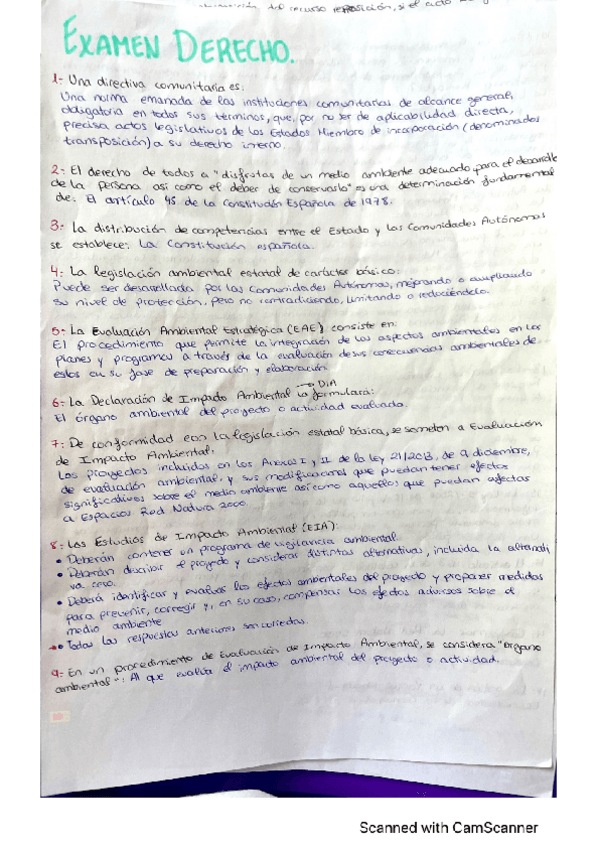 del recurso reposición, si el acto
EXAMEN DERECHO.
1- Una directiva comunitaria es:
Una norma emanada de las instituciones comunitarias de alcance general,
obligatoria en todos sus términos, que, por no ser de aplicabilidad directa,
precisa actos legislativos de los Estados Miembro de incorporación (denominados
transposición) a su derecho interno.
2- El derecho de todos a "disfrutas de un medio ambiente adecuado para el desarrollo
de la persona así como el deber de conservarlo" es una determinación fundamental
de: El artículo 45 de la Constitución Española de 1978.
3- La distribución de competencias entre el Estado y las Comunidades Autónomas
se establece: La Constitución española.
4- La legislación ambiental estatal de carácter básico:
Puede ser desarrollada por las Comunidades Autónomas, mejorando o ampliando
su nivel de protección, pero no contradiciendo, limitando o reduciéndolo.
5- La Evaluación Ambiental Estratégica (EAE) consiste en:
El procedimiento que permite la integración de los aspectos ambientales en los
planes y programas a través de la evaluación de sus consecuencias ambientales de
estos en su fase de preparación y elaboración.
6- La Declaración de Impacto Ambiental → DIA la formulará:
El órgano ambiental del proyecto o actividad evaluada.
7- De conformidad con la legislación estatal básica, se someten a Evaluación
de Impacto Ambiental:
Los proyectos incluidos en los Anexos I y II de la ley 21/2013, de 9 diciembre,
de evaluación ambiental, y sus modificaciones que puedan tener efectos
significativos sobre el medio ambiente así como aquellos que puedan afectas
a Espacios Red Natura 2000.
8- Los Estudios de Impacto Ambiental (EIA):
• Deberán contener un programa de vigilancia ambiental.
• Deberán describir el proyecto y considerar distintas alternativas, incluida la alternati
va cero.
• Deberá identificar y evaluar los efectos ambientales del proyecto y proponer medidas
para prevenir, corregir y, en su caso, compensar los efectos adversos sobre el
medio ambiente
→• Todas las respuestas anteriores son correctas.
9- En un procedimiento de Evaluación de Impacto Ambiental, se considera "Órgano
ambiental": Al que evalúa el impacto ambiental del proyecto o actividad.
Scanned with CamScanner